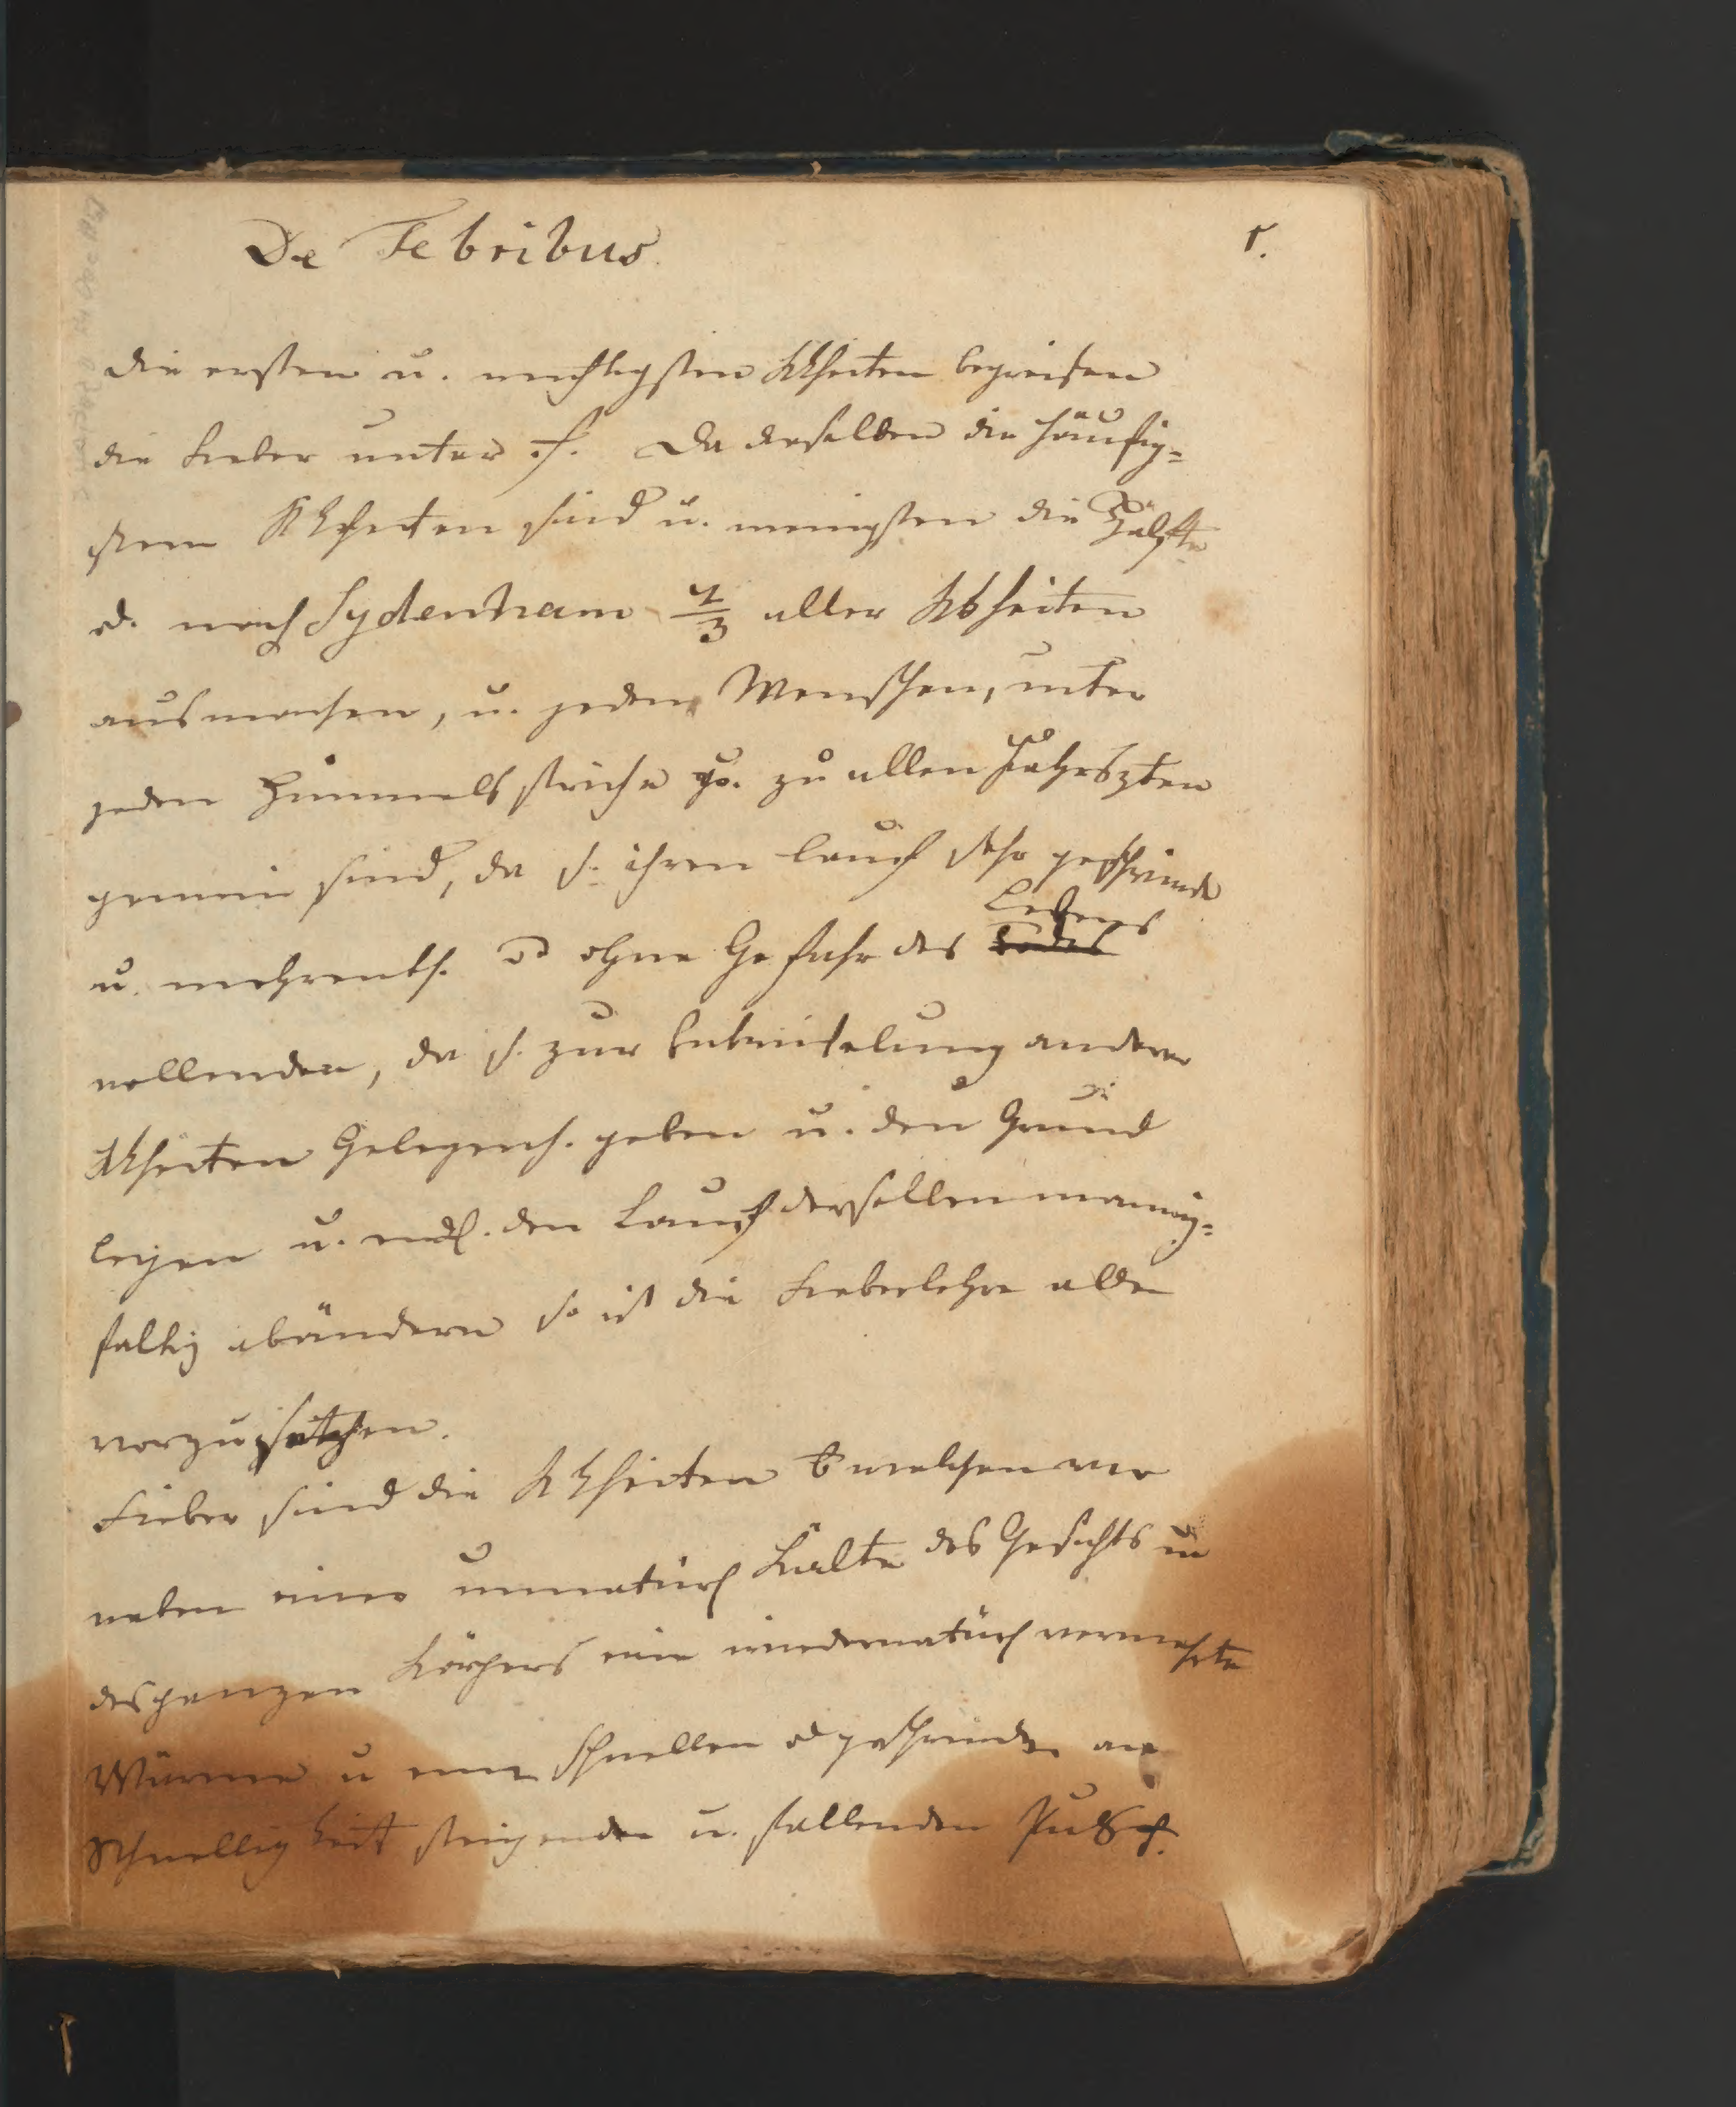 De Febribus. 1.
die ersten u. wichtigsten Kkheiten begreifen
die Fieber unter s. Da dieselben die häufig=
sten Kkheiten sind u. wenigsten die Hälfte
od. nach Sydenham 2/3 aller Kkheiten
ausmachen, u. jedem Menschen, unter
jeden Himmelsstriche u. zu allen Jahrszten
gemein sind, da s. ihren Lauf sehr geschwinde
u. mehrenth. ohne Gefahr des Todes Lebens
vollenden, da s. zur Entwickelung anderer
Kkheiten Gelegenh. geben u. den Grund
legen u. endl. den Lauf derselben mannig=
faltig abändern so ist die Fieberlehre allen
vorzusetzen.
Fieber sind die Kkheiten welchen
neben einer unnatürl Kälte des Gesichts u
des ganzen Körpers eine wiedernatürl vermehrte
Wärme u einen schnellen od geschwinden an
Schnelligkeit steigenden u. fallenden Puls